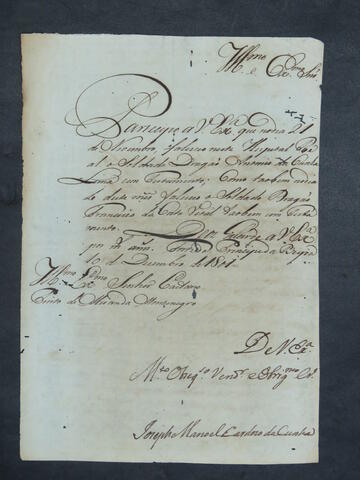 Illmo e Exmo Snr
Participo a V. Exa que no dia 1
de Dezembro faleceo neste Hospital Re
al o Soldado Dragão Antonio da Cunha
Lima com Testamento; Como tambem no dia
de deste mes faleceo o Soldado Dragão
Francisco da Costa tambem com Testa
mento. Ds Guarde a V. Exa
por ms anns. Forte Principe da Beyra
10 de Dezembro de 1801
Illmo e Exmo Senhor Caetano
Pinto de Miranda Montenegro
De V. Exa
Mto Obrigo Venor e Obrigmo Co.
Joseph Manoel Cardozo da Cunha